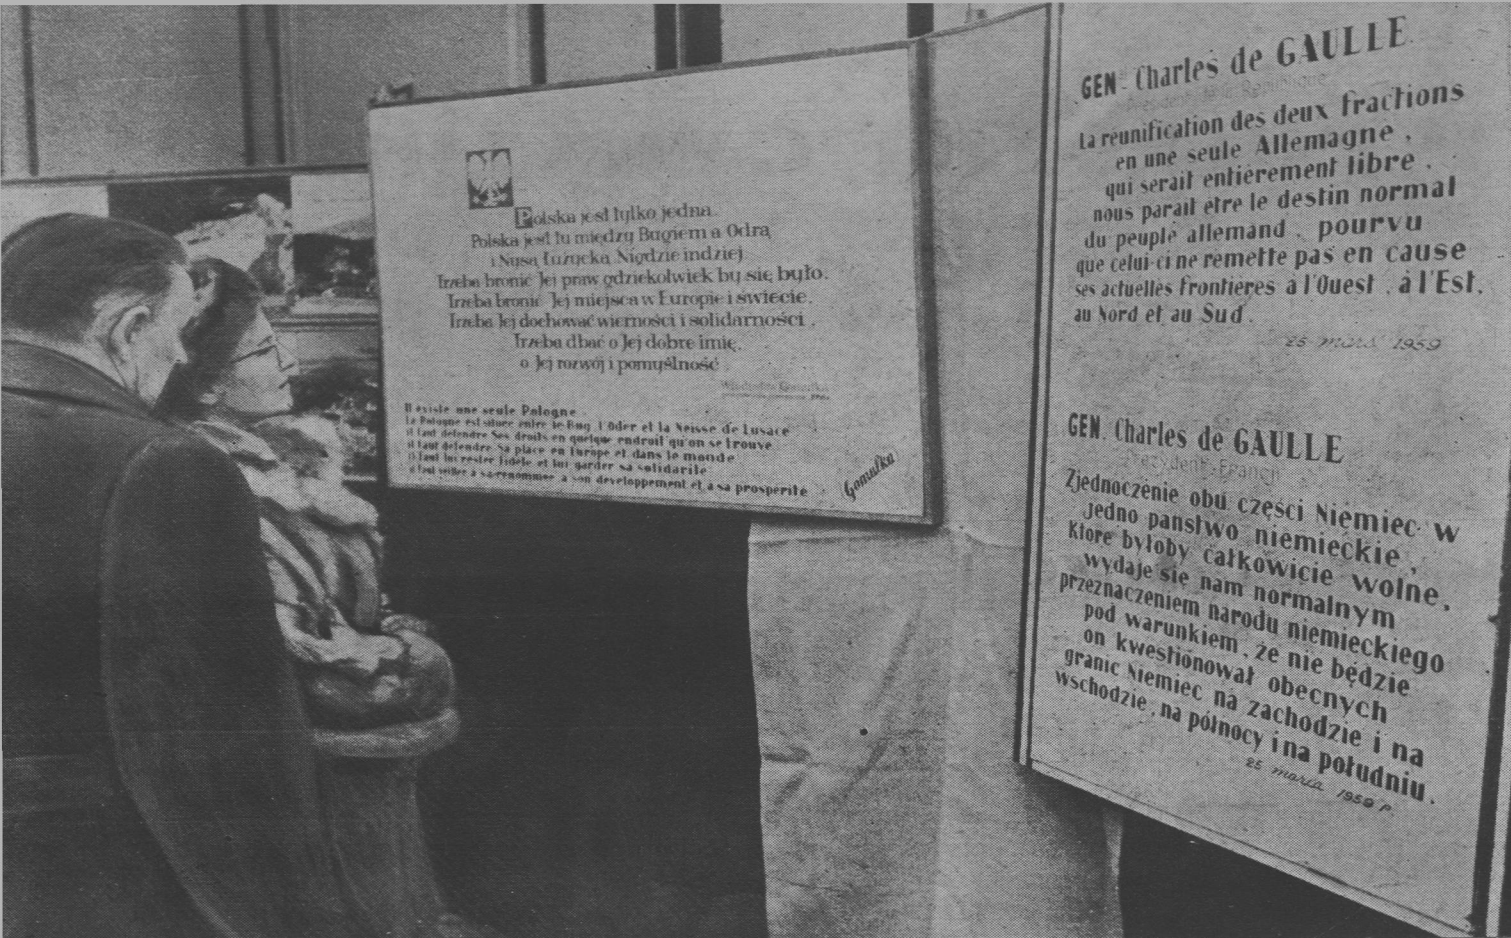 Polska jest tylko jedna.
Polska jest tu między Bugiem a Odrą
i Nysą Łużycką. Nigdzie indziej.
Trzeba bronić Jej praw gdziekolwiek by się było.
Trzeba bronić Jej miejsca w Europie i świecie.
Trzeba Jej dochować wierności i solidarności.
Trzeba dbać o Jej dobre imię,
o Jej rozwój i pomyślność.
Władysław Gomułka
Il existe une seule Pologne.
La Pologne est située entre le Bug, l'Oder et la Neisse de Lusace
il faut défendre Ses droits en quelque endroit qu'on se trouve
il faut défendre Sa place en Europe et dans le monde
il faut lui rester fidèle et lui garder sa solidarité
il faut veiller à sa renommée à son développement et à sa prospérité
Gomulka
GEN. Charles de GAULLE
Président de la République
La réunification des deux fractions
en une seule Allemagne,
qui serait entièrement libre,
nous parait etre le destin normal
du peuple allemand, pourvu
que celui-ci ne remette pas en cause
ses actuelles frontières à l'Ouest, à l'Est,
au Nord et au Sud.
25 mars 1959
GEN. Charles de GAULLE
Prezydent Francji
Zjednoczenie obu części Niemiec w
jedno państwo niemieckie,
które byłoby całkowicie wolne,
wydaje się nam normalnym
przeznaczeniem narodu niemieckiego
pod warunkiem, że nie będzie
on kwestionował obecnych
granic Niemiec na zachodzie i na
wschodzie, na północy i na południu.
25 marca 1959 r.